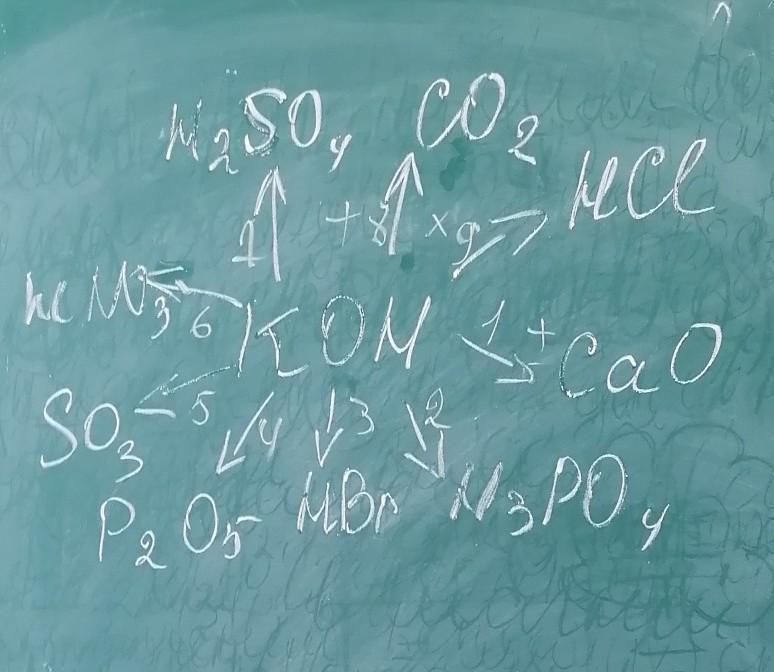 H₂SO₄ CO₂
7 +8 ×9 HCl
3 6
KOH 1 + CaO
SO₃ 5
4 3 2
P₂O₅ HBr H₃PO₄